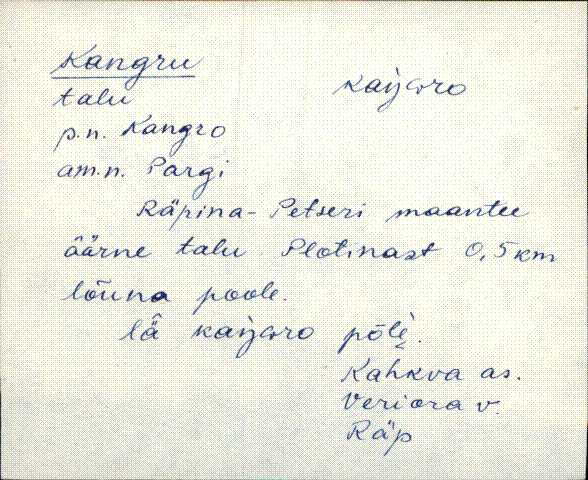 Kangru
kaŋGro
talu
p.n. Kangro
am.n. Pargi
Räpina-Petseri maantee
äärne talu Plotinast 0,5 km
lõuna poole.
lä kaŋGro pōlè.
Kahkva as.
Veriora v.
Räp